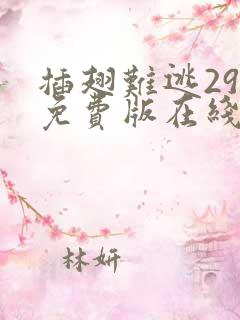 插翅難逃29
免費版在綫
林妍